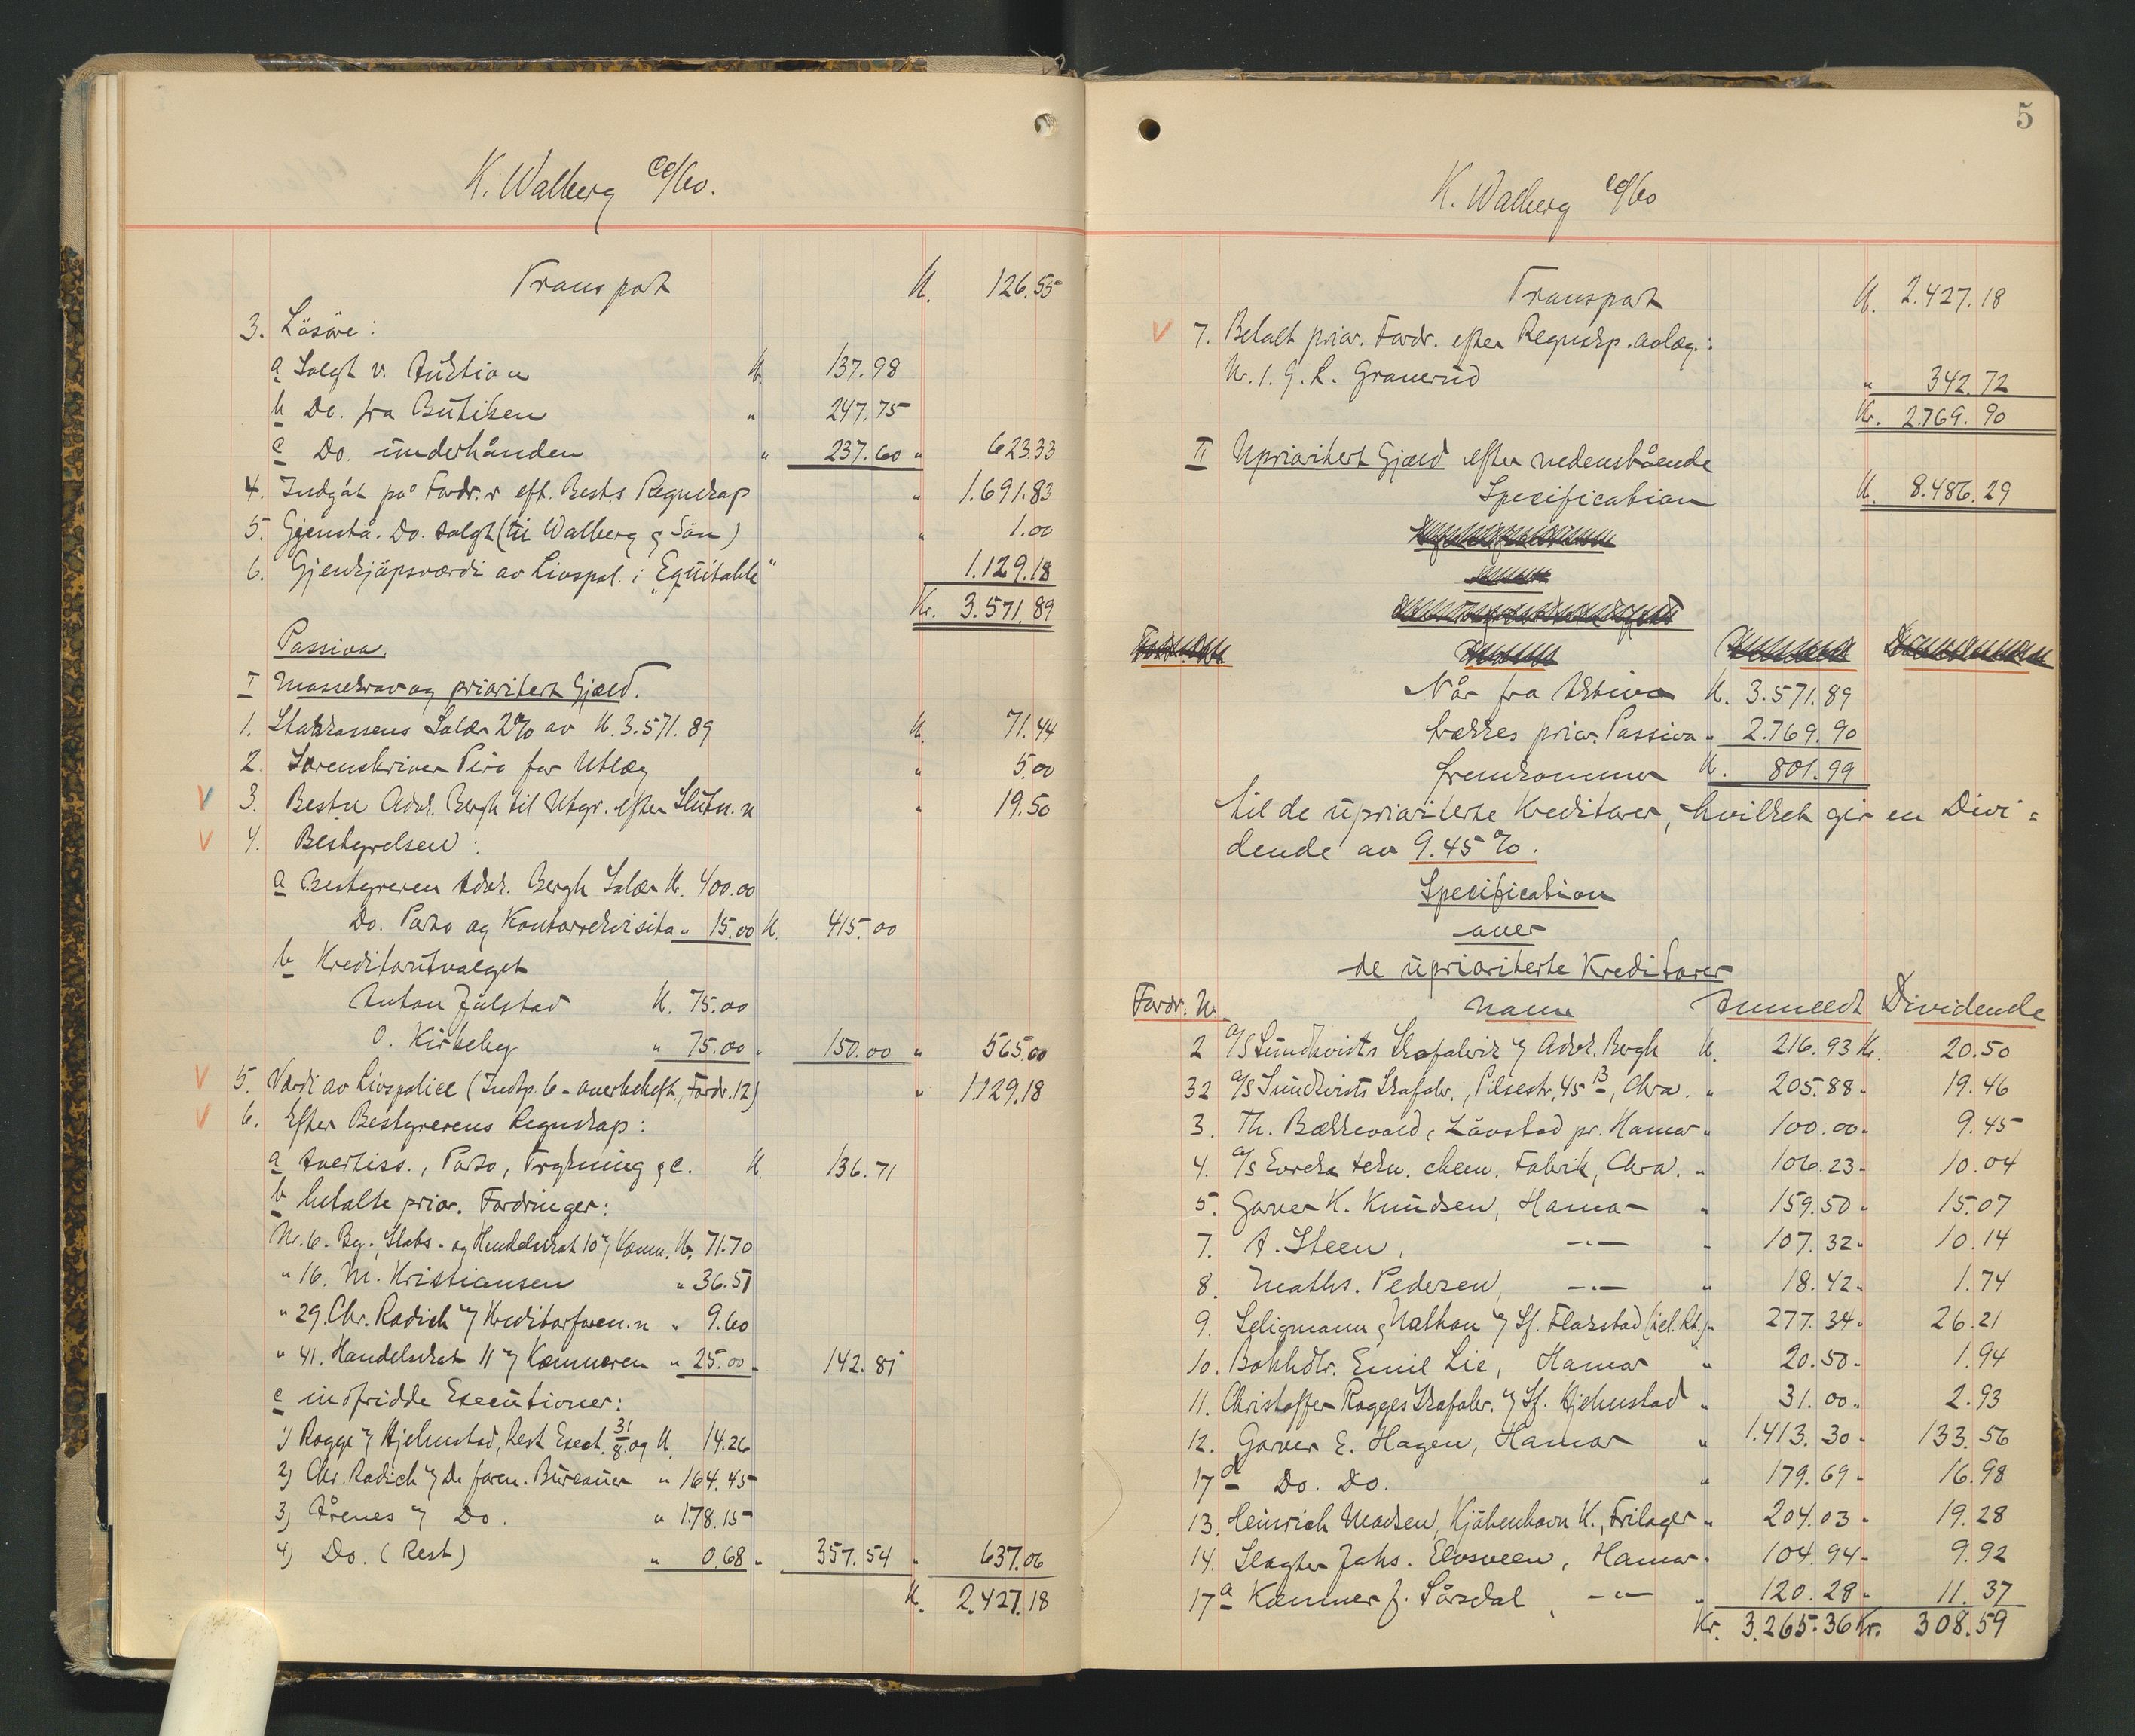 K. Walberg co/Co.
Transport Kr. 126.55
3. Løsøre:
a Solgt v. Auktion Kr. 137.98
b Do. fra Butiken " 247.75
c Do. underhånden " 237.60 " 623.33
4. Indgåt på Fordr.r eft. Bests Regnskap " 1.691.83
5. Gjenstå. Do. solgt (til Walberg & Søn) " 1.00
6. Gjenkjøpsværdi av Livspol. i "Equitable" 1.129.18
Kr. 3.571.89
Passiva.
I Massekrav og prioritert Gjæld.
1. Statskassens Salær 2% av Kr. 3.571.89 Kr. 71.44
2. Sorenskriver Piro for Utlæg " 5.00
3. Bestn Advk. Bergh til Utgr. efter Slutn.n " 19.50
4. Bestyrelsen:
a Bestyreren Advk. Bergh Salær Kr. 400.00
Do. Porto og Kontorrekvisita " 15.00 Kr. 415.00
b Kreditorutvalget
Anton Julstad Kr. 75.00
O. Kirkeby " 75.00 " 150.00 " 565.00
5. Værdi av Livspolice (Indtp. 6 - overbeheft., Fordr. 12) " 1.129.18
6. Efter Bestyrerens Regnskap:
a Avertiss., Porto, Trykning &c. Kr. 136.71
b betalte prior. Fordringer:
Nr. 6. By-, Stats- og Handelsskat 10 v/ Kæmn. Kr. 71.70
" 16. M. Kristiansen " 36.51
" 29. Chr. Radich v/ Kreditorforen.n " 9.60
" 41. Handelskat 11 v/ Kæmneren " 25.00 " 142.81
c indfridde Executioner:
1) Rogge v/ Hjelmstad, Rest Exect. 31/8 og Kr. 14.26
2) Chr. Radich v/ De foren. Bureauer " 164.45
3) Årenes v/ Do. " 178.15
4) Do. (Rest) " 0.68 " 357.54 " 637.06
Kr. 2.427.18
5
K. Walberg co/Co
Transport Kr. 2.427.18
7. Betalt prior. Fordr. efter Regnskp. avlæg.:
Nr. 1. G. L. Granerud " 342.72
Kr. 2.769.90
II Uprioritert Gjæld efter nedenstående
Specification Kr. 8.486.29
Når fra Aktiva Kr. 3.571.89
trækkes prior. Passiva " 2.769.90
fremkommer Kr. 801.99
til de uprioriterte Kreditorer, hvilket gir en Divi=
dende av 9.45%.
Specification
over
de uprioriterte Kreditorer
Fordr. Nr. Navn Anmeldt Dividende
2 A/S Sundkvists Skofabrik v/ Advk. Bergh Kr. 216.93 Kr. 20.50
32 A/S Sundkvists Skofabr., Pilsestr. 45 B, Chra. " 205.88 " 19.46
3. Th. Bækkevold, Løvstad pr. Hamar " 100.00 " 9.45
4. A/S Evreka tekn. chem. Fabrik, Chra. " 106.23 " 10.04
5. Garver K. Knudsen, Hamar " 159.50 " 15.07
7. A. Steen, —"— " 107.32 " 10.14
8. Maths. Pedersen, —"— " 18.42 " 1.74
9. Seligmann & Nathan v/ Sf. Flakstad (iel. Rt.) " 277.34 " 26.21
10. Bokhdlr. Emil Lie, Hamar " 20.50 " 1.94
11. Christoffer Rogges Skofabr. v/ Sf. Hjelmstad " 31.00 " 2.93
12. Garver E. Hagen, Hamar " 1.413.30 " 133.56
17 d Do. Do. " 179.69 " 16.98
13. Heinrich Madsen, Kjøbenhavn K., Frilager " 204.03 " 19.28
14. Slagter Johs. Elvsveen, Hamar " 104.94 " 9.92
17 a Kæmner J. Sørsdal, —"— " 120.28 " 11.37
Kr. 3.265.36 Kr. 308.59